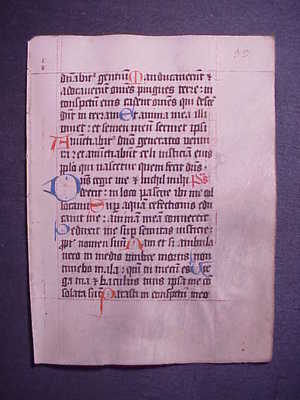 dn̄abit̄ gentiū Manducaverūt &
adoraverūt om̄es pingues terre: in
conspectu eius cadent om̄es qui descē
dūt in terram Et anima mea illi
vivet: et semen meū serviet ipsi
Anūciabit̄ dn̄o generatio ventu
ra: et anūciabūt celi iusticiam eius
pplo qui nascetur quem fecit dn̄s.
Dn̄s regit me & nichil michi Ps
deerit: in loco pascue ibi me col
locavit Sup aquam refectionis edu
cavit me: animā meā convertit
Deduxit me sup semitas iusticie:
ppt nomen suū Nā et si ambula
vero in medio umbre mortis: non
timebo mala: qm̄ tu mecū es Uir
ga tua & baculus tuus: ipsa me cō
solata sūt Parasti in conspectu meo